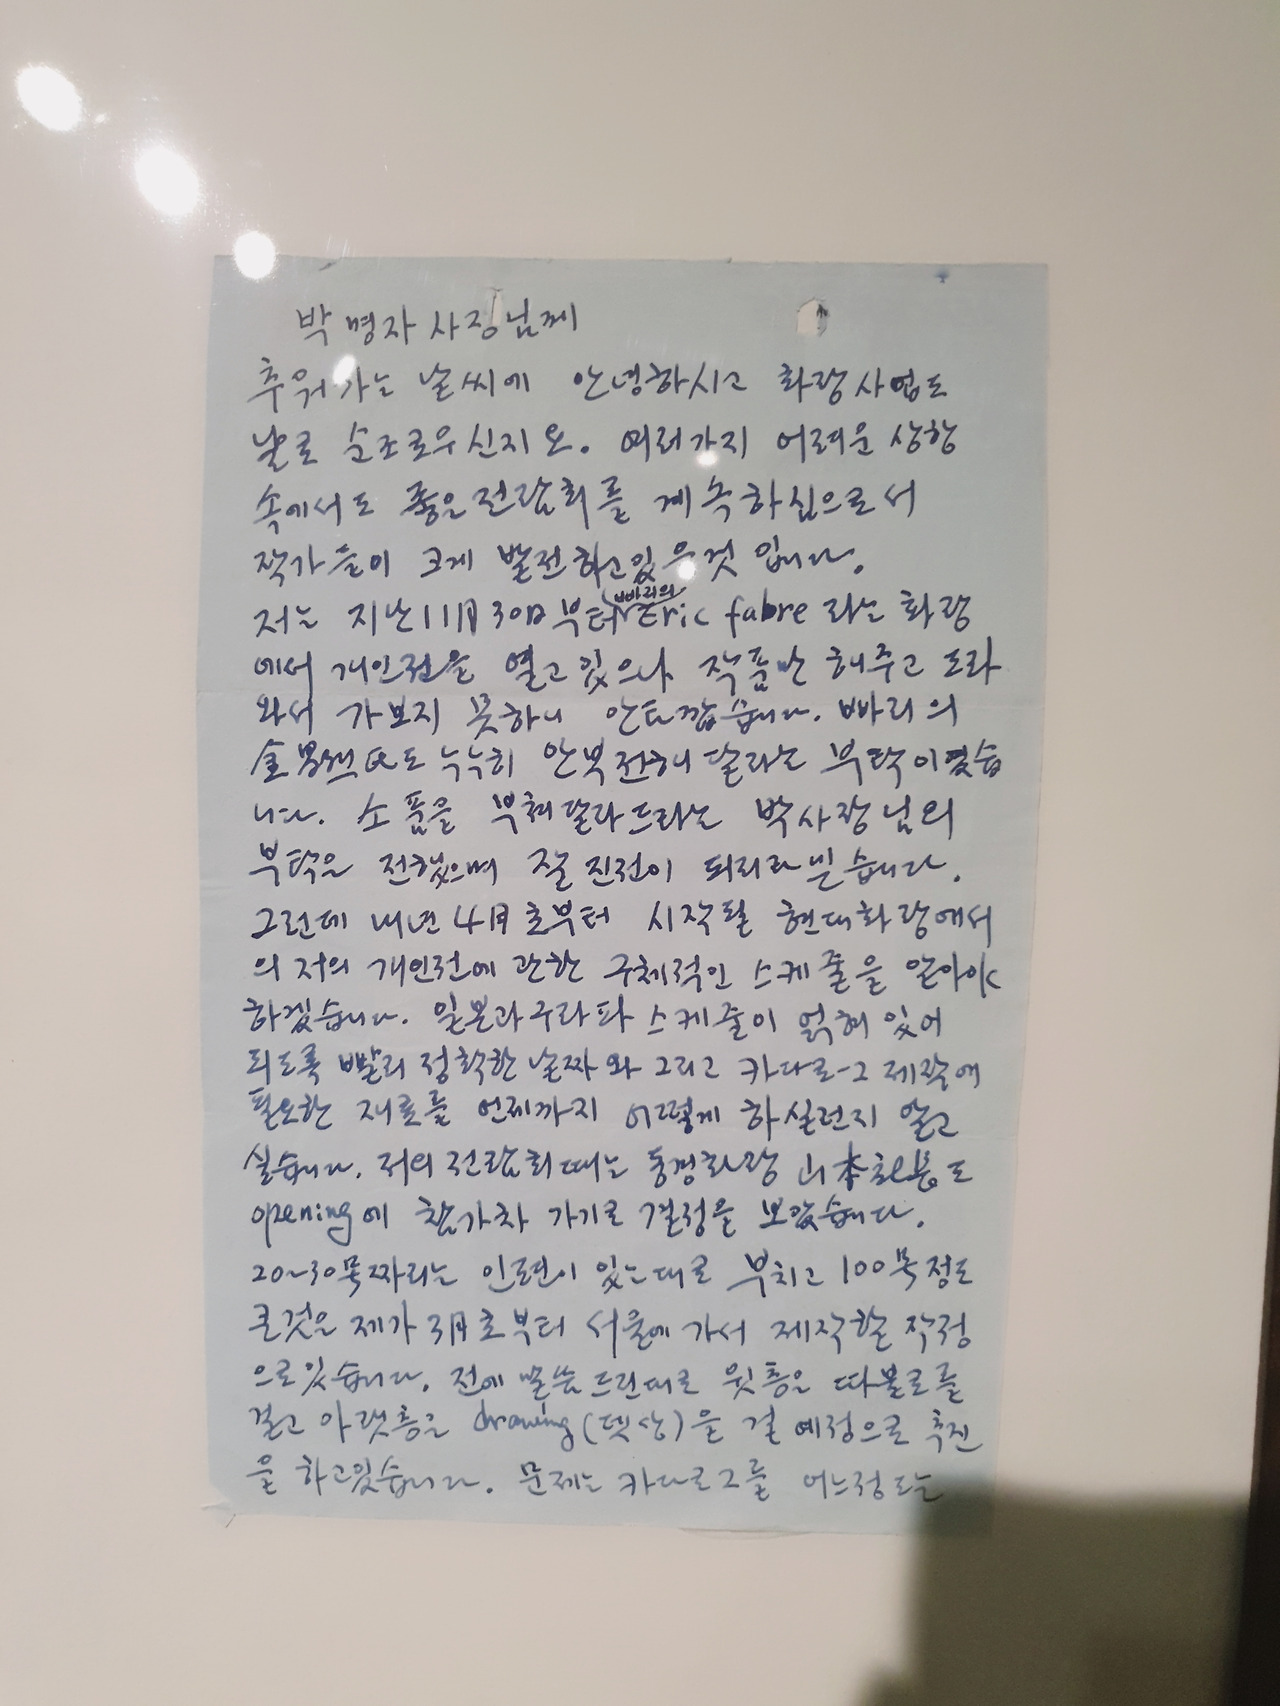 박명자 사장님께
추워가는 날씨에 안녕하시고 화랑사업도
날로 순조로우신지요. 여러가지 어려운 상항
속에서도 좋은 전람회를 계속하심으로서
작가들이 크게 발전하고있는것 입니다.
저는 지난 11月 30日 부터 빠리의 Eric fabre 라는 화랑
에서 개인전을 열고 있으나 작품만 해주고 도라
와서 가보지 못하니 안타깝습니다. 빠리의
金 氏도 누누히 안부전해 달라는 부탁이였습
니다. 소품을 부쳐달라드라는 박사장님의
부탁은 전했으며 잘 진전이 되리라 믿습니다.
그런데 내년 4月초부터 시작될 현대화랑에서
의 저의 개인전에 관한 구체적인 스케줄을 알아야
하겠습니다. 일본과 구라파 스케줄이 얽혀 있어
되도록 빨리 정확한 날짜와 그리고 카다로-그 제작에
필요한 재료를 언제까지 어떻게 하실런지 알고
싶습니다. 저의 전람회때는 동경화랑 山本 도
opening에 참가차 가기로 결정을 보았습니다.
20~30号짜리는 인편이 있는대로 부치고 100号정도
큰것은 제가 3月초부터 서울에 가서 제작할 작정
으로있습니다. 전에 말씀드린대로 윗층은 따블로를
걸고 아랫층은 drawing(뎃상)을 걸 예정으로 추진
을 하고있습니다. 문제는 카다로그를 어느정도는